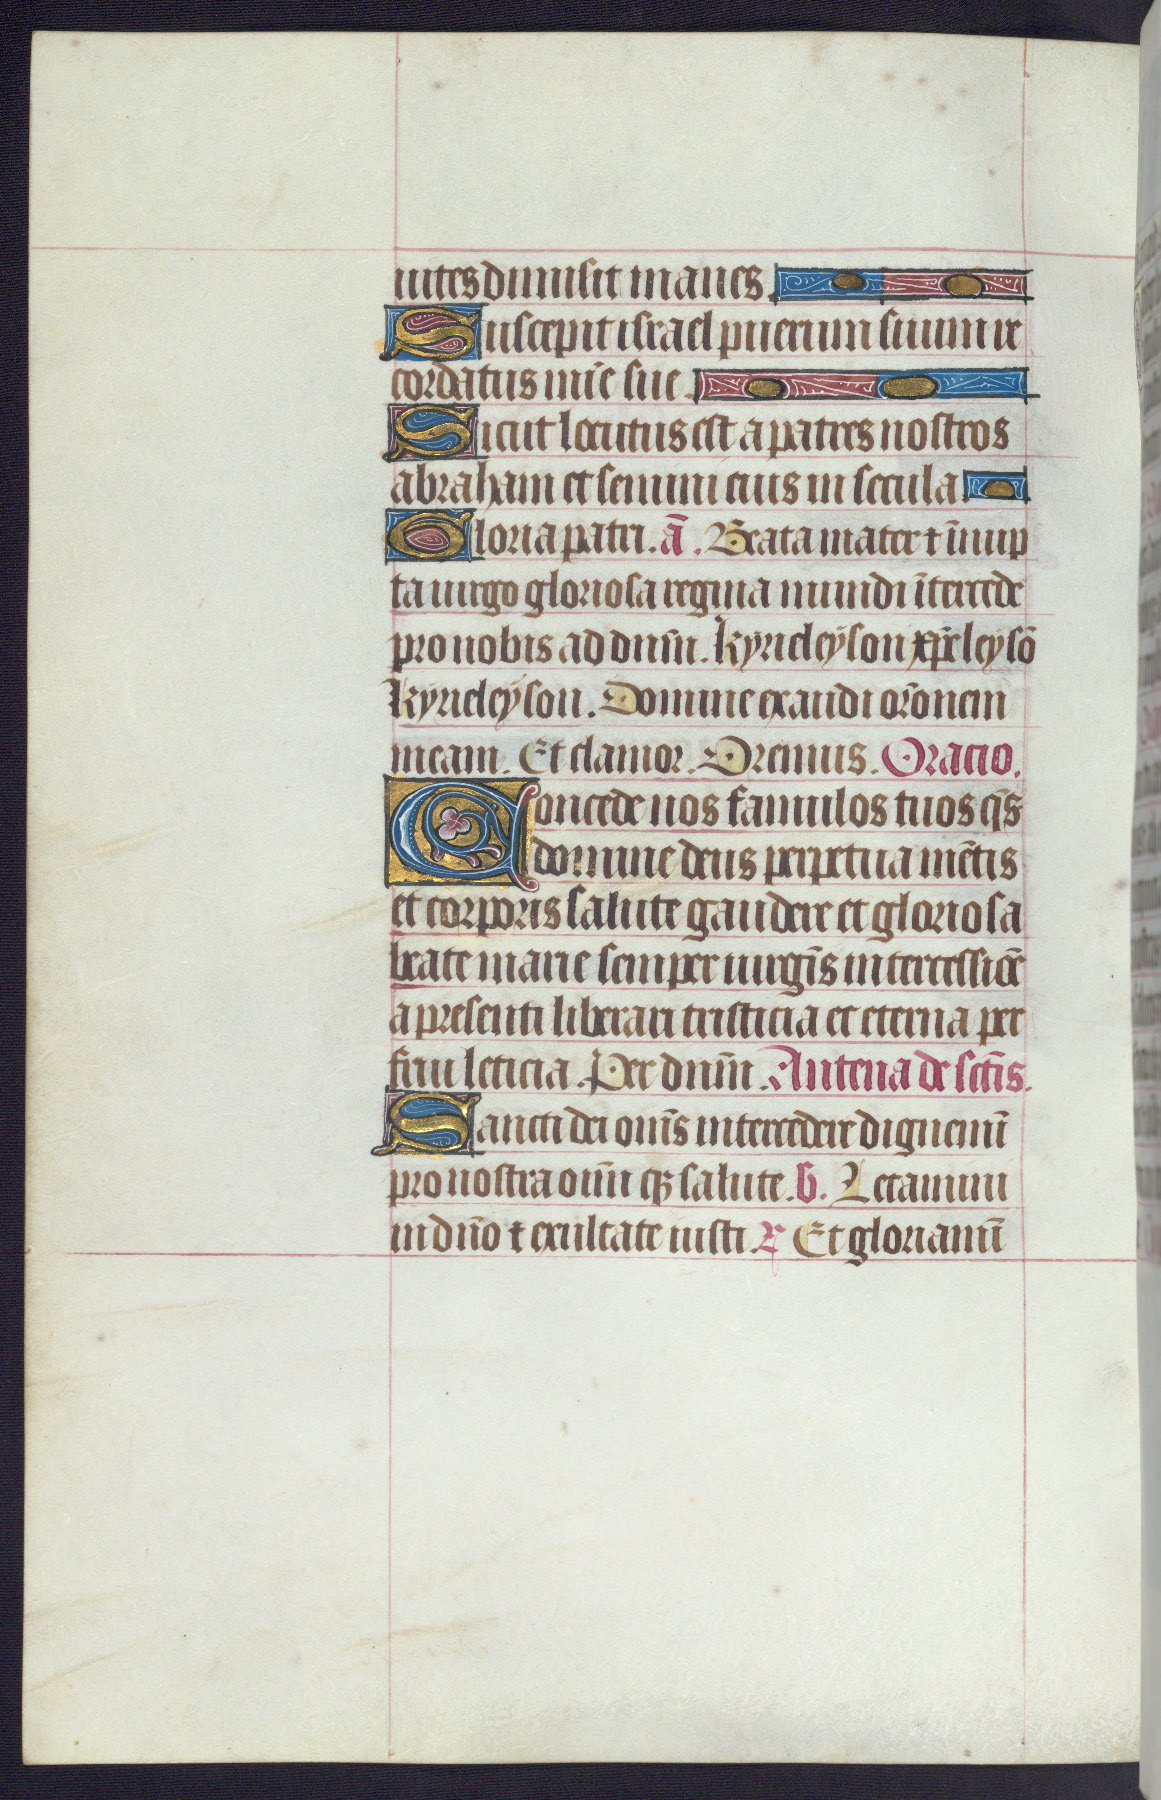 uites dimisit inanes
Suscepit israel puerum suum re
cordatus mĩe sue.
Sicut locutus est a patres nostros
abraham et semini eius in secula
Gloria patri. ã. Beata mater ⁊ ĩnup
ta uirgo gloriosa regina mundi ĩtercede
pro nobis ad dnm̃. kyrieleyson xp̃eleysõ
kyrieleyson. Domine exaudi or̃onem
meam. Et clamor. Oremus. Oracio.
Concede nos famulos tuos q̃s
domine deus perpetua mẽtis
et corporis salute gaudere et gloriosa
beate marie semper uirgĩs intercessiõe
a presenti liberari tristicia et eterna per
frui leticia. Per dnm̃. Antena de sctĩs.
Sancti dei om̃s intercedere dignemĩ
pro nostra om̃i qꝫ salute. ℣. Letamini
in dño ⁊ exultate iusti. ℟ Et gloriamĩ